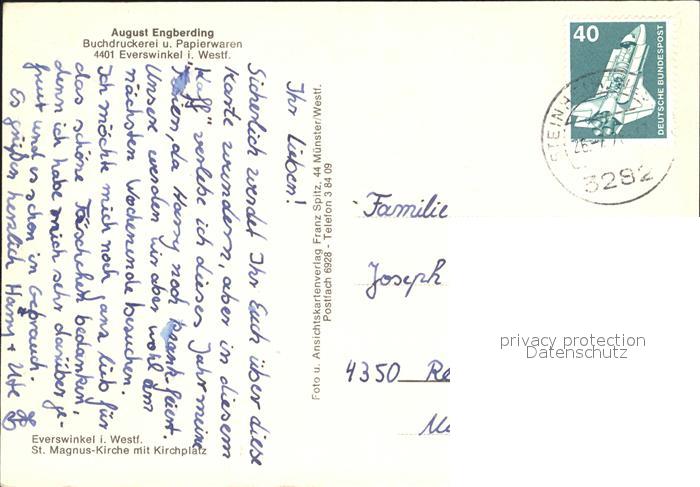 August Engberding
Buchdruckerei u. Papierwaren
4401 Everswinkel i. Westf.
Ihr Lieben!
Sicherlich werdet Ihr Euch über diese
Karte wundern, aber in diesem
"Kaff" verlebe ich dieses Jahr meine
Ferien, da Harry noch krank feiert.
Unsere werden wir aber wohl am
nächsten Wochenende besuchen.
Ich möchte mich noch ganz lieb für
das schöne Täschchen bedanken,
denn ich habe mich sehr darüber ge-
freut und es schon in Gebrauch.
Es grüßen herzlich Harry + Ute
Everswinkel i. Westf.
St. Magnus-Kirche mit Kirchplatz
Foto u. Ansichtskartenverlag Franz Spitz, 44 Münster/Westf.
Postfach 6928 - Telefon 3 84 09
40
DEUTSCHE BUNDESPOST
3282
Familie
Joseph
4350 Re
privacy protection
Datenschutz